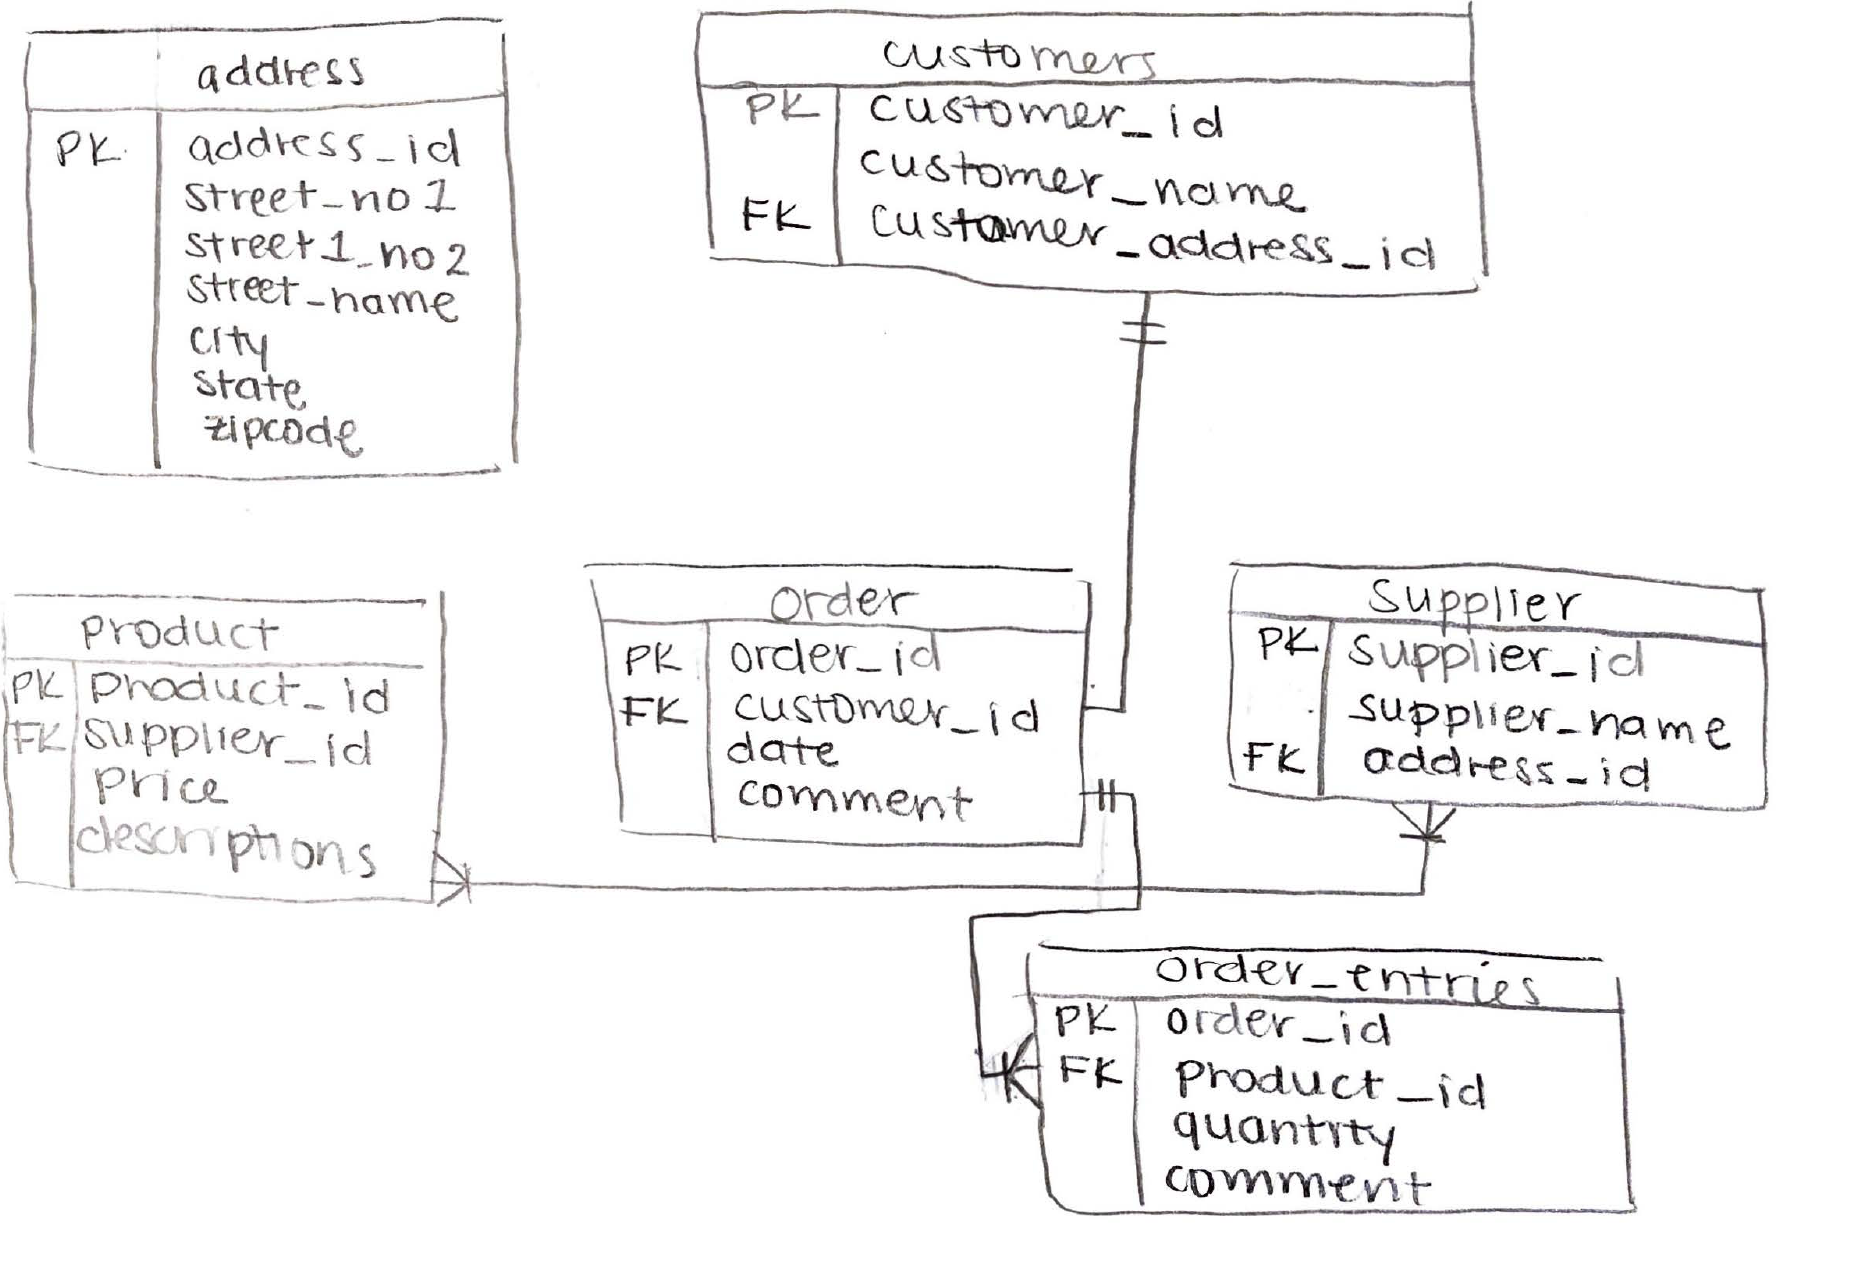 address
PK address_id
street_no1
street1_no2
street_name
city
state
zipcode
customers
PK customer_id
customer_name
FK customer_address_id
product
PK product_id
FK supplier_id
price
descriptions
order
PK order_id
FK customer_id
date
comment
supplier
PK supplier_id
supplier_name
FK address_id
order_entries
PK order_id
FK product_id
quantity
comment